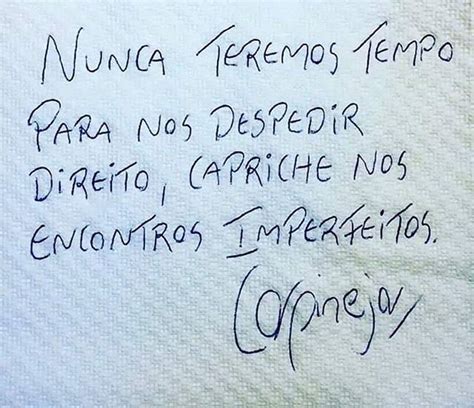 NUNCA TEREMOS TEMPO
PARA NOS DESPEDIR
DIREITO, CAPRICHE NOS
ENCONTROS IMPERFEITOS.
Carpinejar